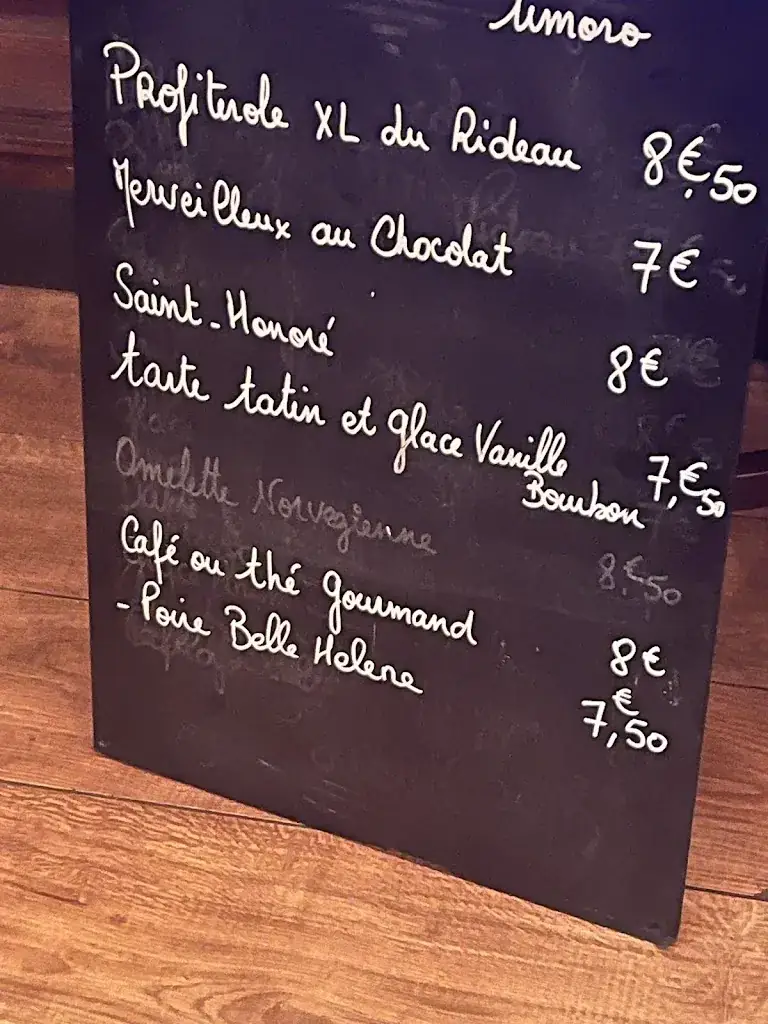 Profiterole XL du Rideau 8€,50
Merveilleux au Chocolat 7€
Saint-Honoré 8€
tarte tatin et glace Vanille 7,€50
Bourbon
Omelette Norvegienne 8,€50
Café ou thé gourmand 8€
- Poire Belle Helene 7,€50